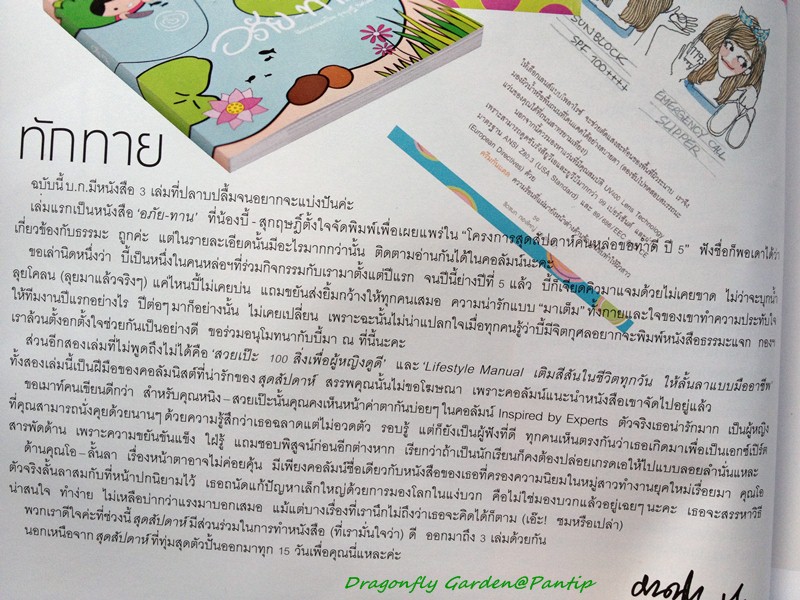 อภัย-ทาน
SUNBLOCK
SPF 100++++
EMERGENCY CALL
SLIPPER
UV400 Lens Technology
มาตรฐาน ANSI Z80.3 (USA Standard) และ 89/686/EEC
(European Directives) ด้วย
ทักทาย
ฉบับนี้ บ.ก.มีหนังสือ 3 เล่มที่ปลาบปลื้มจนอยากจะแบ่งปันค่ะ
เล่มแรกเป็นหนังสือ 'อภัย-ทาน' ที่น้องบี้ - สุกฤษฎิ์ตั้งใจจัดพิมพ์เพื่อเผยแพร่ใน "โครงการสุดสัปดาห์คนหล่อขอทำดี ปี 5" ฟังชื่อก็พอเดาได้ว่า
เกี่ยวข้องกับธรรมะ ถูกค่ะ แต่ในรายละเอียดนั้นมีอะไรมากกว่านั้น ติดตามอ่านกันได้ในคอลัมน์นะคะ
ขอเล่านิดหนึ่งว่า บี้เป็นหนึ่งในคนหล่อฯที่ร่วมกิจกรรมกับเรามาตั้งแต่ปีแรก จนปีนี้ย่างปีที่ 5 แล้ว บี้ก็เจียดคิวมาแจมด้วยไม่เคยขาด ไม่ว่าจะบุกน้ำ
ลุยโคลน (ลุยมาแล้วจริงๆ) แค่ไหนบี้ไม่เคยบ่น แถมขยันส่งยิ้มกว้างให้ทุกคนเสมอ ความน่ารักแบบ "มาเต็ม" ทั้งกายและใจของเขาทำความประทับใจ
ให้ทีมงานปีแรกอย่างไร ปีต่อๆ มาก็อย่างนั้น ไม่เคยเปลี่ยน เพราะฉะนั้นไม่น่าแปลกใจเมื่อทุกคนรู้ว่าบี้มีจิตกุศลอยากจะพิมพ์หนังสือธรรมะแจก กองฯ
เราล้วนตั้งอกตั้งใจช่วยกันเป็นอย่างดี ขอร่วมอนุโมทนากับบี้มา ณ ที่นี้นะคะ
ส่วนอีกสองเล่มที่ไม่พูดถึงไม่ได้คือ 'สวยเป๊ะ 100 สิ่งเพื่อผู้หญิงดูดี' และ 'Lifestyle Manual เติมสีสันในชีวิตทุกวัน ให้ลั้นลาแบบมืออาชีพ'
ทั้งสองเล่มนี้เป็นฝีมือของคอลัมนิสต์ที่น่ารักของ สุดสัปดาห์ สรรพคุณนั้นไม่ขอโฆษณา เพราะคอลัมน์แนะนำหนังสือเขาจัดไปอยู่แล้ว
ขอเมาท์คนเขียนดีกว่า สำหรับคุณหนิง - สวยเป๊ะนั้นคุณคงเห็นหน้าค่าตากันบ่อยๆ ในคอลัมน์ Inspired by Experts ตัวจริงเธอน่ารักมาก เป็นผู้หญิง
ที่คุณสามารถนั่งคุยด้วยนานๆ ด้วยความรู้สึกว่าเธอฉลาดแต่ไม่อวดตัว รอบรู้ แต่ก็ยังเป็นผู้ฟังที่ดี ทุกคนเห็นตรงกันว่าเธอเกิดมาเพื่อเป็นเอกซ์เปิร์ต
สารพัดด้าน เพราะความขยันขันแข็ง ใฝ่รู้ แถมชอบพิสูจน์ก่อนอีกต่างหาก เรียกว่าถ้าเป็นนักเรียนก็คงต้องปล่อยเกรดเอให้ไปแบบลอยลำนั่นแหละ
ด้านคุณโอ - ลั้นลา เรื่องหน้าตาอาจไม่ค่อยคุ้น มีเพียงคอลัมน์ชื่อเดียวกับหนังสือของเธอที่ครองความนิยมในหมู่สาวทำงานยุคใหม่เรื่อยมา คุณโอ
ตัวจริงลั้นลาสมกับที่หน้าปกนิยามไว้ เธอถนัดแก้ปัญหาเล็กใหญ่ด้วยการมองโลกในแง่บวก คือไม่ใช่มองบวกแล้วอยู่เฉยๆ นะคะ เธอจะสรรหาวิธี
น่าสนใจ ทำง่าย ไม่เหลือบ่ากว่าแรงมาบอกเสมอ แม้แต่บางเรื่องที่เรานึกไม่ถึงว่าเธอจะคิดได้ก็ตาม (เอ๊ะ! ชมหรือเปล่า)
พวกเราดีใจค่ะที่ช่วงนี้ สุดสัปดาห์ มีส่วนร่วมในการทำหนังสือ (ที่เรามั่นใจว่า) ดี ออกมาถึง 3 เล่มด้วยกัน
นอกเหนือจาก สุดสัปดาห์ ที่ทุ่มสุดตัวปั้นออกมาทุก 15 วันเพื่อคุณนี่แหละค่ะ
Dragonfly Garden@Pantip